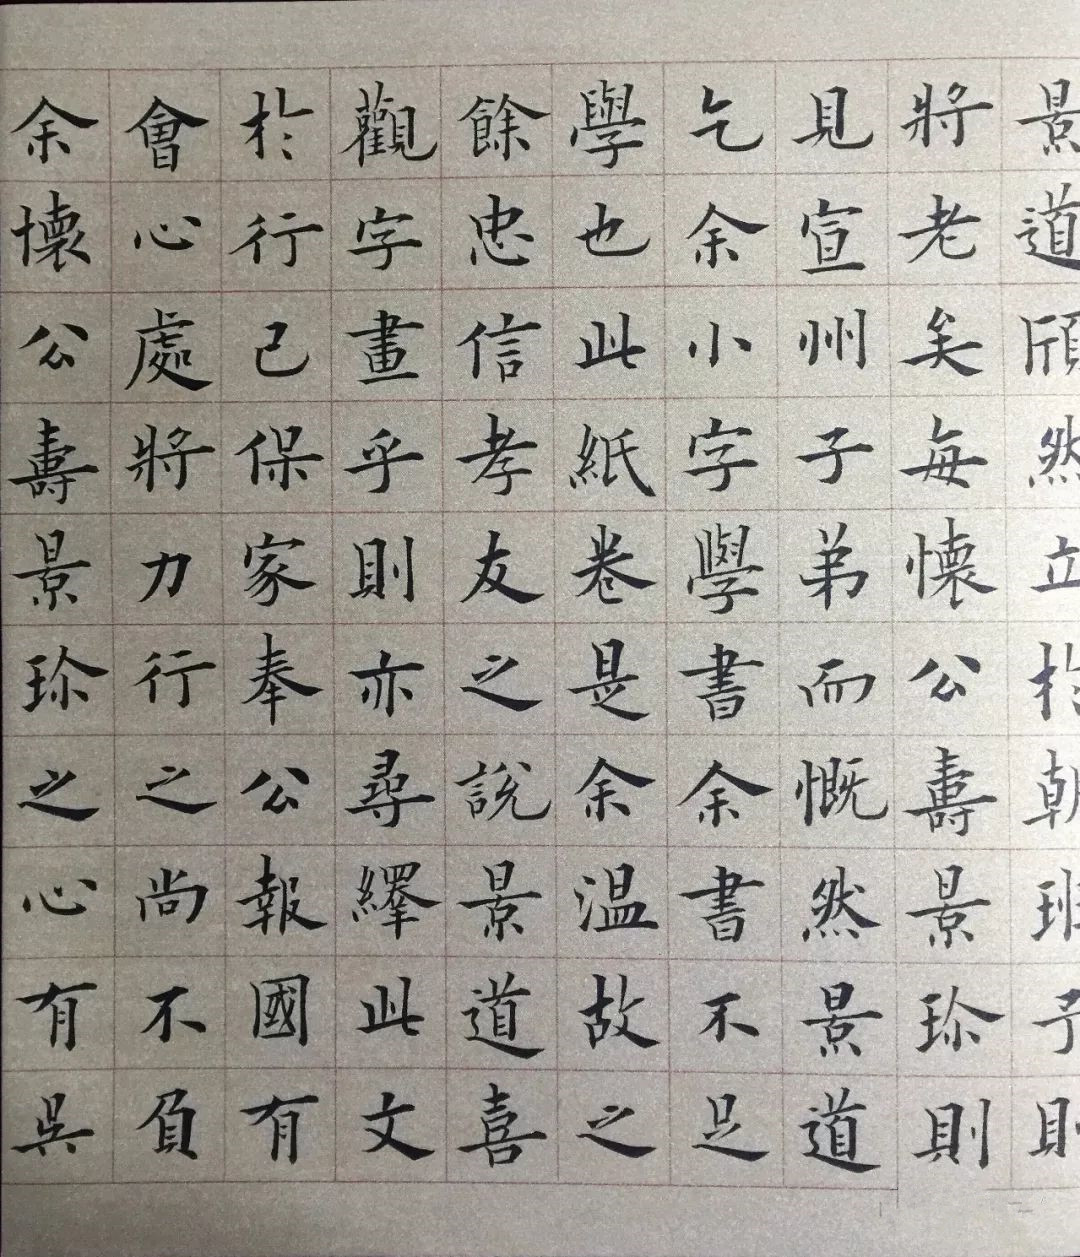 景道頎然立於朝班予則
將老矣每懷公壽景珎則
見宣州子弟而慨然景道
乞余小字學書余書不足
學也此紙卷是余温故之
餘忠信孝友之說景道喜
觀字畫乎則亦尋繹此文
於行己保家奉公報國有
會心處將力行之尚不負
余懷公壽景珎之心有吳